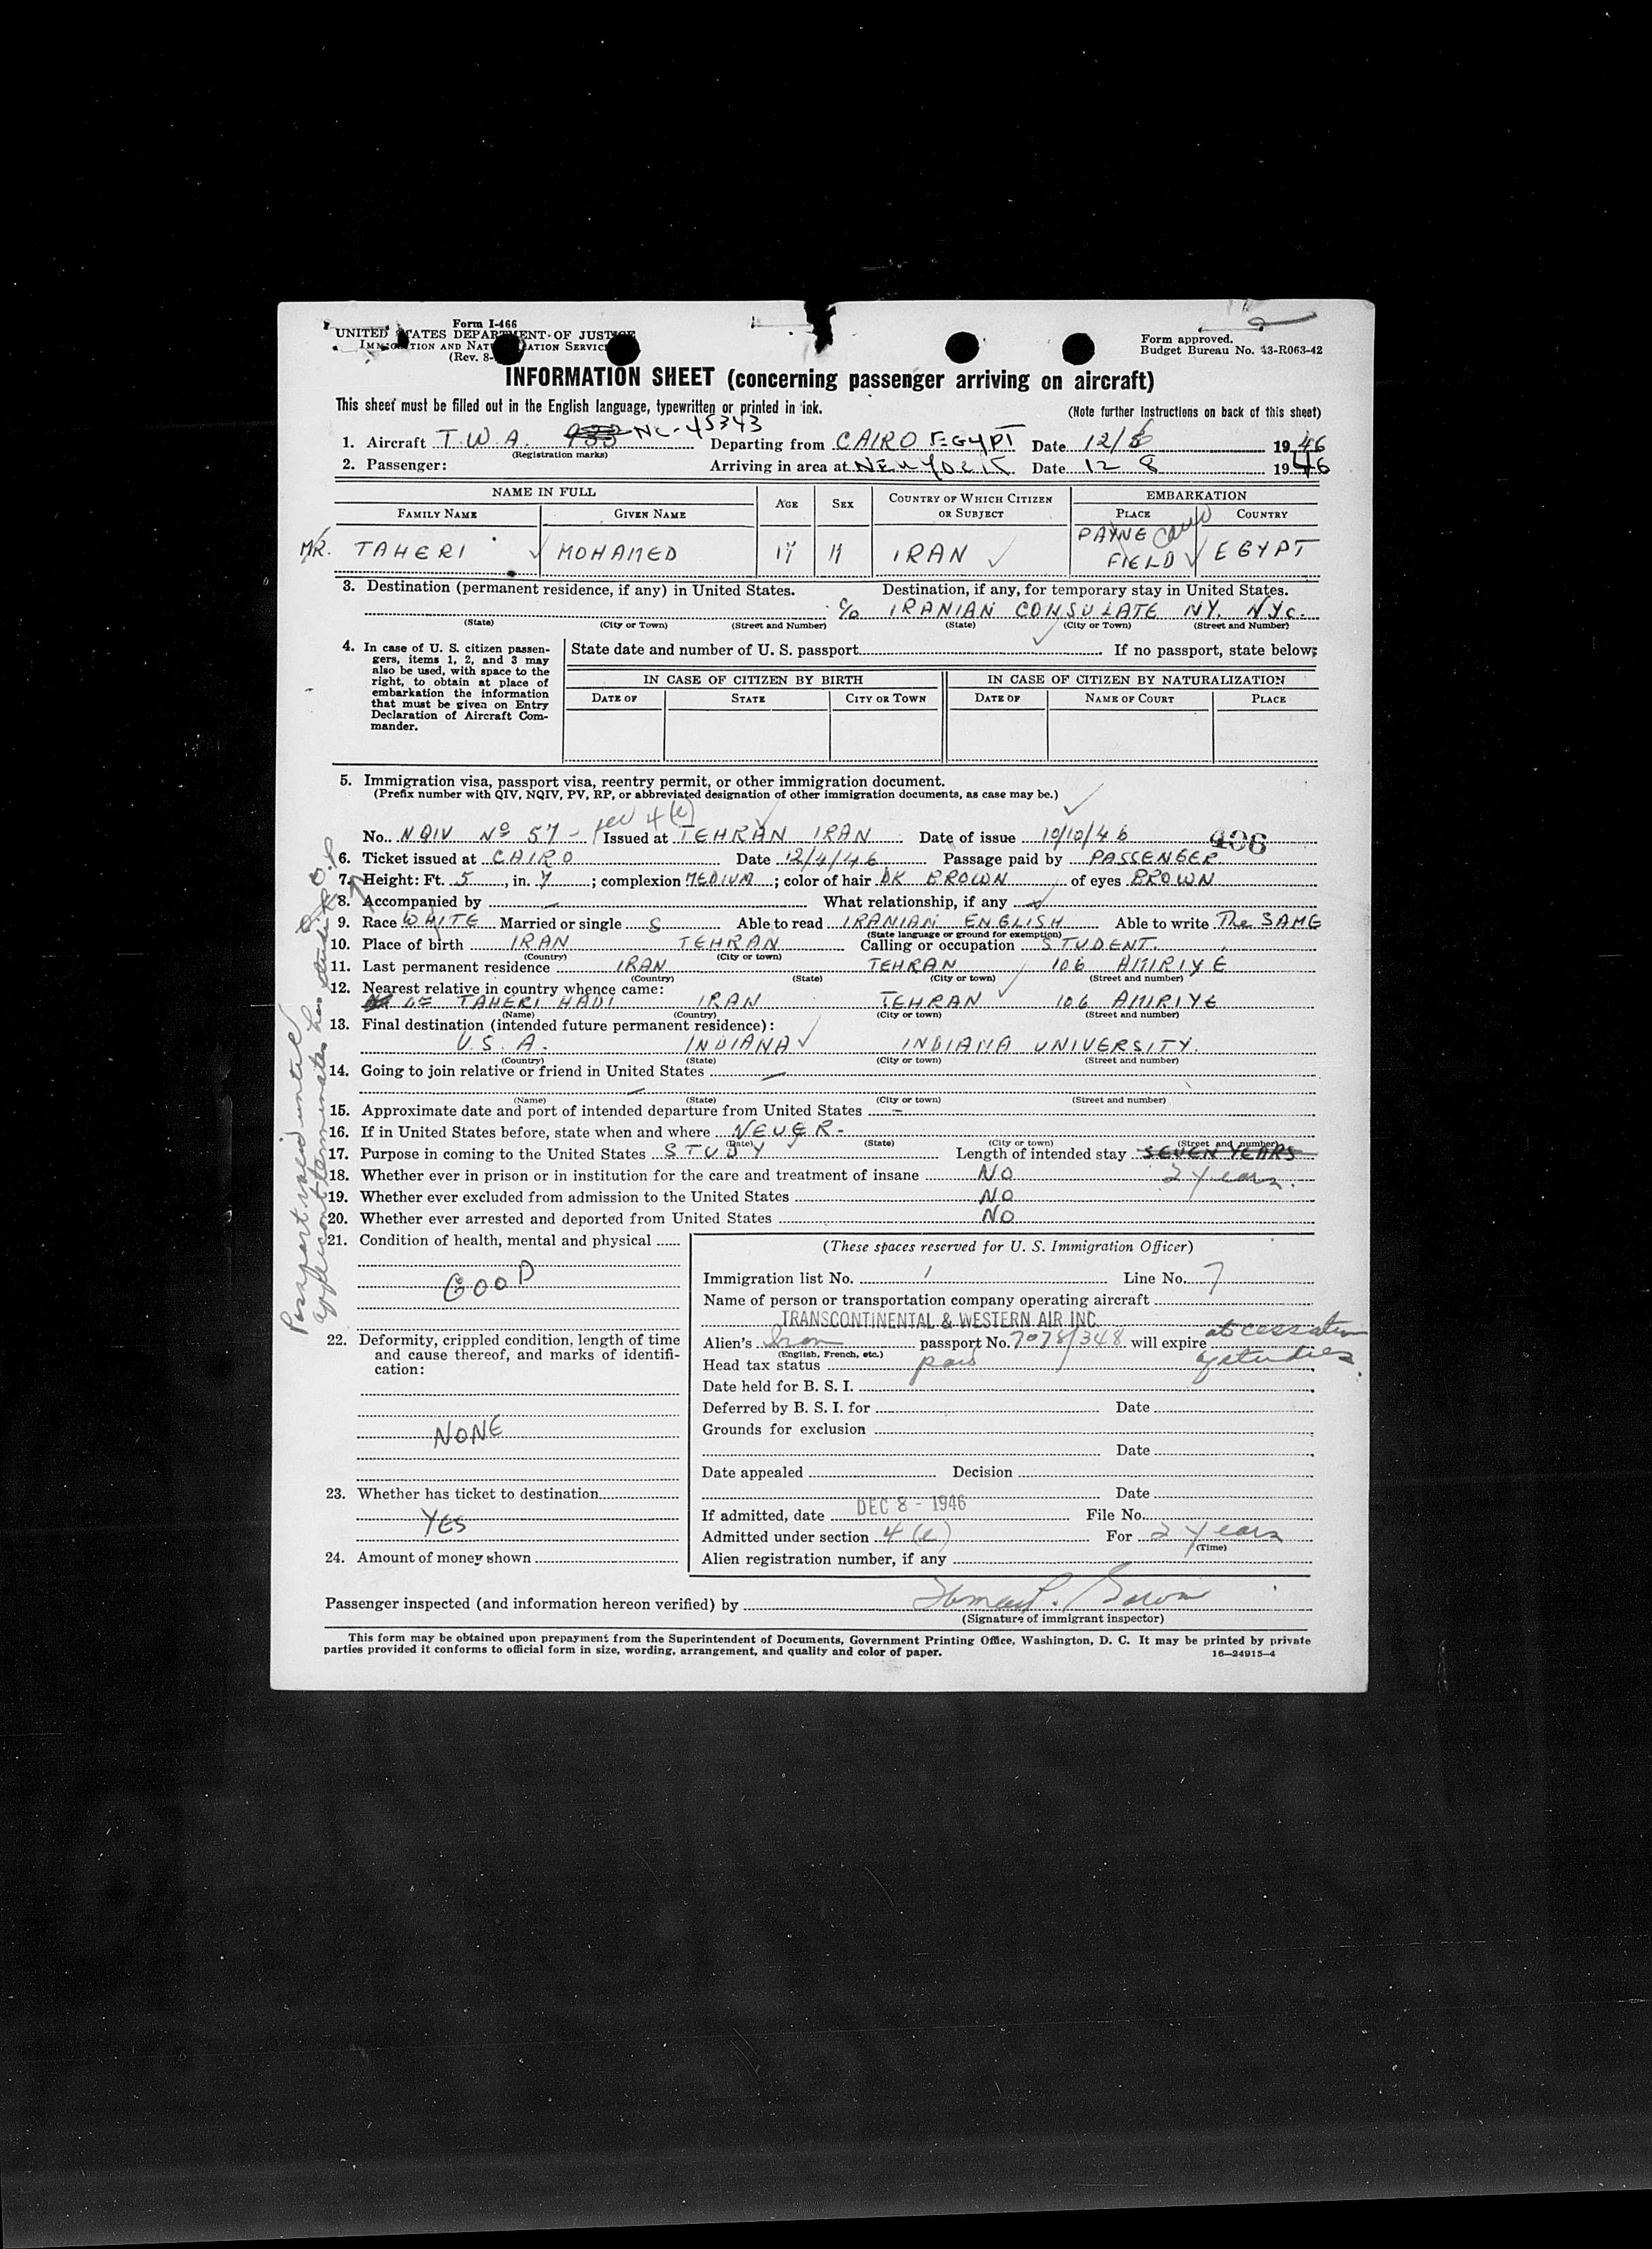 Form I-466
UNITED STATES DEPARTMENT OF JUSTICE
IMMIGRATION AND NATURALIZATION SERVICE
(Rev. 8-
Form approved.
Budget Bureau No. 43-R063-42
INFORMATION SHEET (concerning passenger arriving on aircraft)
This sheet must be filled out in the English language, typewritten or printed in ink.
(Note further instructions on back of this sheet)
1. Aircraft T.W.A. NC-45343 Departing from CAIRO EGYPT Date 12/6 1946
(Registration marks)
2. Passenger: Arriving in area at NEW YORK Date 12 8 1946
NAME IN FULL AGE SEX COUNTRY OF WHICH CITIZEN OR SUBJECT EMBARKATION
FAMILY NAME GIVEN NAME PLACE COUNTRY
MR. TAHERI MOHAMED 17 M IRAN PAYNE FIELD Cairo EGYPT
3. Destination (permanent residence, if any) in United States. Destination, if any, for temporary stay in United States.
c/o IRANIAN CONSULATE NY. NYC.
(State) (City or Town) (Street and Number) (State) (City or Town) (Street and Number)
4. In case of U. S. citizen passengers, items 1, 2, and 3 may also be used, with space to the right, to obtain at place of embarkation the information that must be given on Entry Declaration of Aircraft Commander.
State date and number of U. S. passport If no passport, state below:
IN CASE OF CITIZEN BY BIRTH IN CASE OF CITIZEN BY NATURALIZATION
DATE OF STATE CITY OR TOWN DATE OF NAME OF COURT PLACE
5. Immigration visa, passport visa, reentry permit, or other immigration document.
(Prefix number with QIV, NQIV, PV, RP, or abbreviated designation of other immigration documents, as case may be.)
No. NQIV No 57 - sec 4(e) Issued at TEHRAN IRAN Date of issue 10/10/46 406
6. Ticket issued at CAIRO Date 12/4/46 Passage paid by PASSENGER
7. Height: Ft. 5, in. 7; complexion MEDIUM; color of hair DK BROWN of eyes BROWN
8. Accompanied by — What relationship, if any
9. Race WHITE Married or single S Able to read IRANIAN ENGLISH Able to write The SAME
(State language or ground for exemption)
10. Place of birth IRAN TEHRAN Calling or occupation STUDENT
(Country) (City or town)
11. Last permanent residence IRAN TEHRAN 106 AMIRIYE
(Country) (State) (City or town) (Street and number)
12. Nearest relative in country whence came:
TAHERI HADI IRAN TEHRAN 106 AMIRIYE
(Name) (Country) (City or town) (Street and number)
13. Final destination (intended future permanent residence):
U.S.A. INDIANA INDIANA UNIVERSITY.
(Country) (State) (City or town) (Street and number)
14. Going to join relative or friend in United States —
(Name) (State) (City or town) (Street and number)
15. Approximate date and port of intended departure from United States —
16. If in United States before, state when and where NEVER-
(Date) (State) (City or town) (Street and number)
17. Purpose in coming to the United States STUDY Length of intended stay SEVEN YEARS
2 years.
18. Whether ever in prison or in institution for the care and treatment of insane NO
19. Whether ever excluded from admission to the United States NO
20. Whether ever arrested and deported from United States NO
21. Condition of health, mental and physical
GOOD
22. Deformity, crippled condition, length of time and cause thereof, and marks of identification:
NONE
23. Whether has ticket to destination
YES
24. Amount of money shown
(These spaces reserved for U. S. Immigration Officer)
Immigration list No. 1 Line No. 7
Name of person or transportation company operating aircraft
TRANSCONTINENTAL & WESTERN AIR INC.
Alien's Iran passport No. 7078/348 will expire at cessation of studies.
(English, French, etc.)
Head tax status paid
Date held for B. S. I.
Deferred by B. S. I. for Date
Grounds for exclusion
Date
Date appealed Decision
Date
If admitted, date DEC 8 - 1946 File No.
Admitted under section 4(e) For 2 years
(Time)
Alien registration number, if any
Passenger inspected (and information hereon verified) by
(Signature of immigrant inspector)
This form may be obtained upon prepayment from the Superintendent of Documents, Government Printing Office, Washington, D. C. It may be printed by private
parties provided it conforms to official form in size, wording, arrangement, and quality and color of paper.
16—24915-4
Passport valid until
applicant terminates his studies